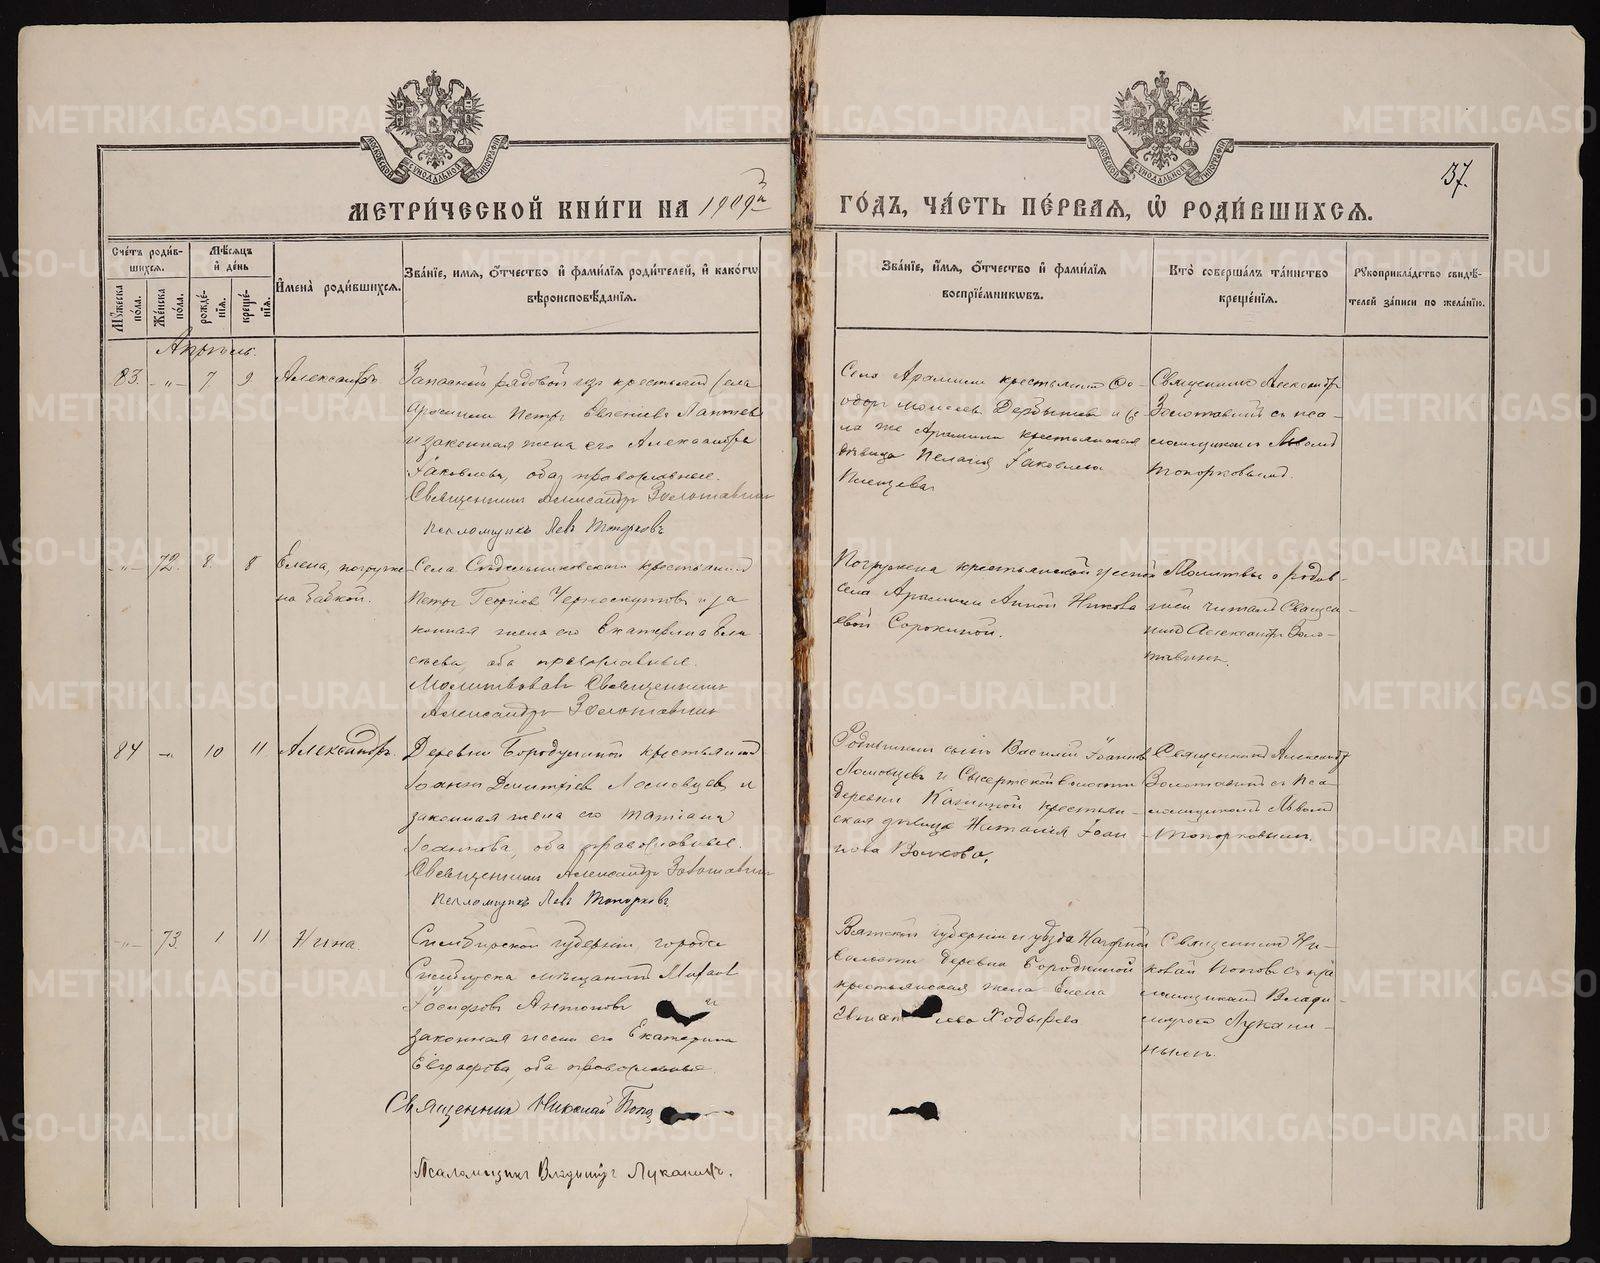 МЕТРИ́ЧЕСКОЙ КНИ́ГИ НА 1909й
ГО́ДЪ, ЧА́СТЬ ПЕ́РВАѦ, Ѡ҆ РОДИ́ВШИХСѦ.
37.
МОСКОВСКОЙ СѴНОДАЛЬНОЙ ТИПОГРАФІИ
МОСКОВСКОЙ СѴНОДАЛЬНОЙ ТИПОГРАФІИ
Сче́тъ роди́в-
шихсѧ.
Мѣ́сѧцъ
и҆ де́нь
Мꙋ́жеска по́ла.
Же́нска по́ла.
рожде́-
нїѧ.
креще́-
нїѧ.
И҆мена̀ роди́вшихсѧ.
Зва́нїе, имѧ, ѻ҆́тчество и҆ фами́лїѧ роди́телей, и҆ како́гѡ
вѣроисповѣ́данїѧ.
Зва́нїе, и҆́мѧ, ѻ҆́тчество и҆ фами́лїѧ
воспрїе́мникѡвъ.
Кто̀ соверша́лъ та́инство
креще́нїѧ.
Рꙋкоприкла́дство свидѣ́-
телей за́писи по жела́нїю.
Апрѣль.
83. -"- 7 9 Александръ
Запасный рядовой изъ крестьянъ села
Арамили Петръ Евгеніевъ Лаптевъ
и законная жена его Александра
Іаковлева, оба православные.
Священникъ Александръ Золотавинъ
Псаломщикъ Левъ Топорковъ
Села Арамили крестьянинъ Ѳе-
одоръ Моисеевъ Дербышевъ и се-
ла же Арамили крестьянская
дѣвица Пелагія Іаковлева
Священникъ Александръ
Золотавинъ съ пса-
ломщикомъ Львомъ
Топорковымъ.
-"- 72. 8. 8 Елена, погруже-
на бабкой.
Села крестьянинъ
Петръ Георгіевъ Черноскутовъ и за
конная жена его Екатерина
оба православные.
Молитвовалъ Священникъ
Александръ Золотавинъ
Погружена крестьянской женой
села Арамили Анной Никола
евой Сорокиной.
Молитвы о родив-
шей читалъ Священ-
никъ Александръ Золо-
тавинъ.
84 -"- 10 11 Александръ.
Деревни Бородулиной крестьянинъ
Іоаннъ Димитріевъ Ломовцевъ и
законная жена его Татіана
Іоаннова, оба православные.
Священникъ Александръ Золотавинъ
Псаломщикъ Левъ Топорковъ
Родившихъ сынъ Василій Іоанновъ
Ломовцевъ и Сысертской волости
деревни Кашиной крестьян-
ская дѣвица Наталія Іоан
нова Волкова.
Священникъ Александръ
Золотавинъ съ пса-
ломщикомъ Львомъ
Топорковымъ.
-"- 73. 1 11 Нина.
Симбирской губерніи города
мѣщанинъ
Іосифовъ Антоновъ и
законная жена его Екатерина
Евграфова, оба православные.
Священникъ Николай Попо
Псаломщикъ Владиміръ Луканинъ.
Вятской губерніи и уѣзда
волости деревни Бородкиной
крестьянская жена Елена
Ходырева
Священникъ Ни-
колай Поповъ съ пса-
ломщикомъ Влади-
міромъ Лукани-
нымъ.
METRIKI.GASO-URAL.RU